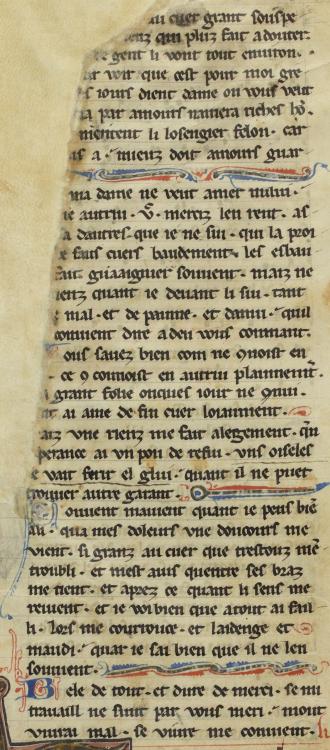 au cuer grant souspe
enz qui pluz fait a douter.
gent li vont tout environ.
voir que cest pour moi gre
s iours dient dame on vous veut
ia par amours namera riches ho.
mentent li losengier felon. car
s a. mienz doit amours guar
ma dame ne veut amer nului.
ie autrui. v. merciz len rent. as
a dautres que ie ne sui. qui la proi
e fauz cuers baudement. les esbau
fait guaaignier souvent. maiz ne
ienz quant ie devant li sui. tant
e mal. et de painne. et danui. quil
couvient dire a deu vous conmant.
ous savez bien com ne qnoist en
. ce q connoist en autrui plainnemt.
grant folie onques iour ne qnui.
t ai ame de fin cuer loiaument.
aiz une rienz me fait alegement. qn
perance ai un pou de refui. uns oiseles
e vait ferir el glui. quant il ne puet
trouver autre garant.
ouvient mavient quant ie pens bien
a li. qua mes dolours une doucours me
vient. si granz au cuer que trestouz men
troubli. et mest avis quentre ses braz
me tient. et aprez ce quant li sens me
revient. et ie voi bien que a tout ai fail
li. lors me courrouce. et laidenge et
maudi. quar ie sai bien que il ne len
souvient.
Bele de tout. et dure de merci. se mi
travaill ne sunt par vous meri. mout
vivrai mal. se vivre me couvient.